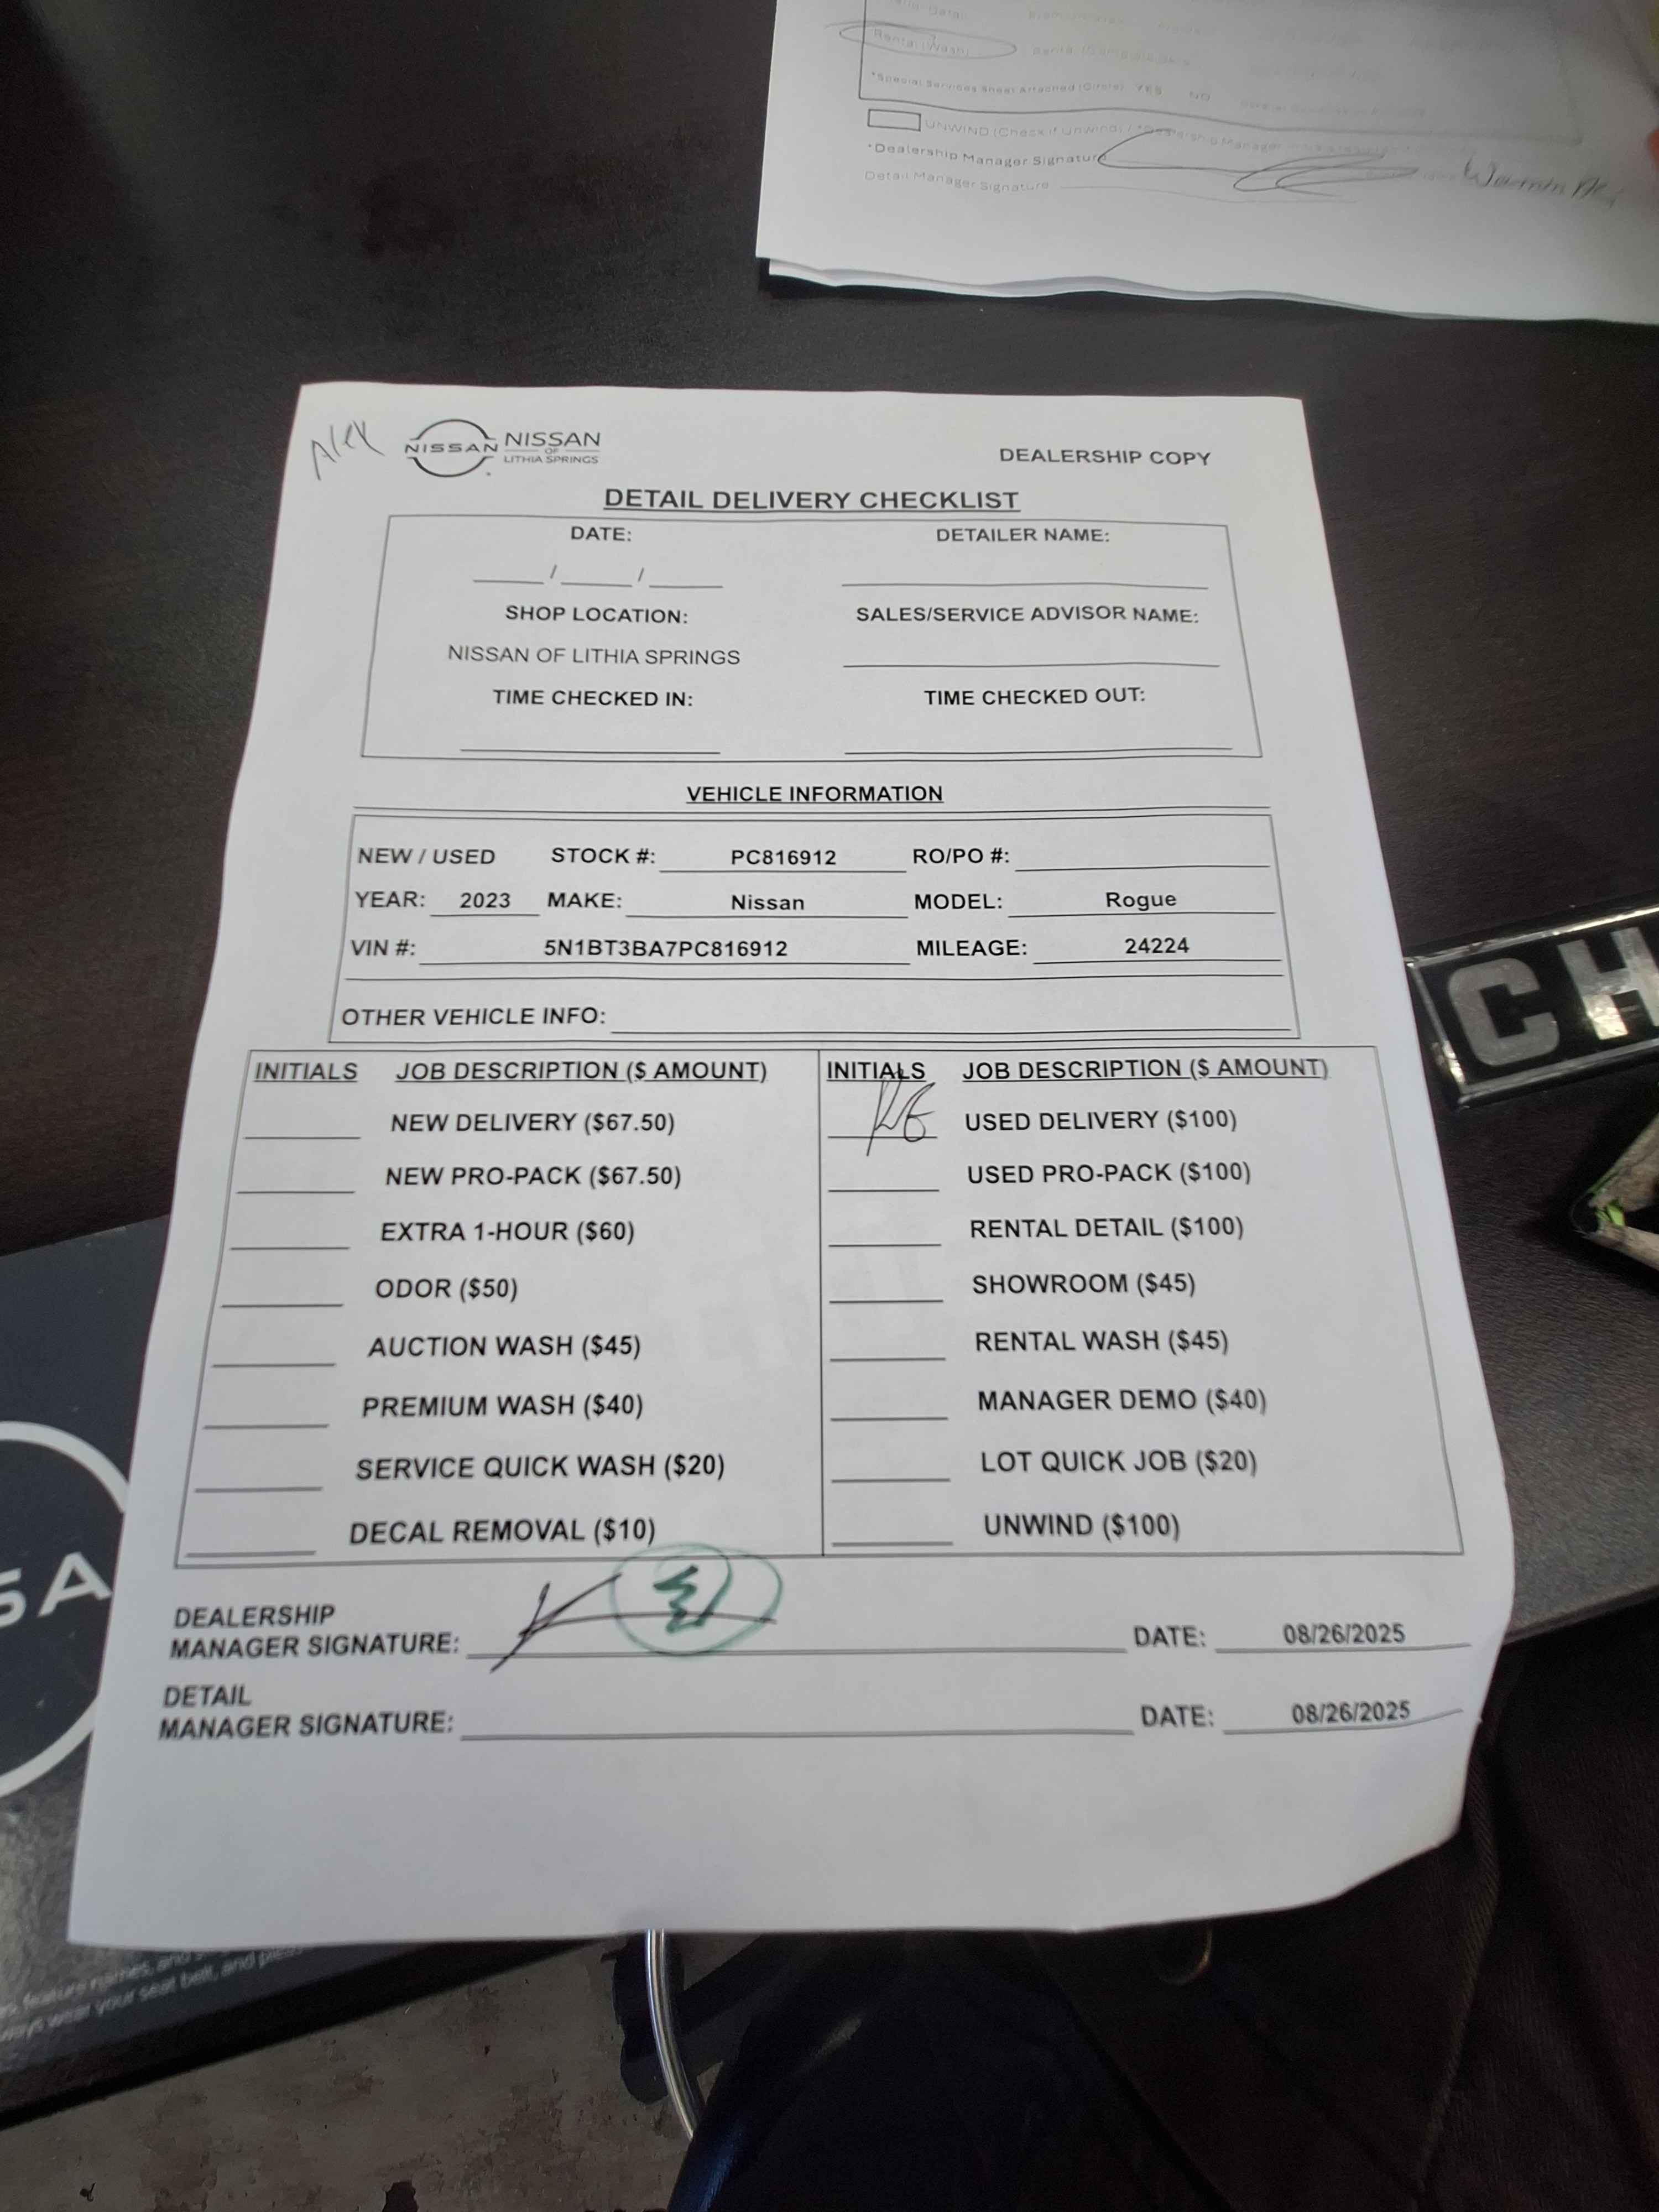 Rental (Wash)
*Special Services Sheet Attached (Circle) YES NO
UNWIND (Check if Unwind) / *Dealership Manager
*Dealership Manager Signature
Detail Manager Signature
Alex
NISSAN
NISSAN
OF
LITHIA SPRINGS
DEALERSHIP COPY
DETAIL DELIVERY CHECKLIST
DATE: DETAILER NAME:
____/____/____
SHOP LOCATION: SALES/SERVICE ADVISOR NAME:
NISSAN OF LITHIA SPRINGS
TIME CHECKED IN: TIME CHECKED OUT:
VEHICLE INFORMATION
NEW / USED STOCK #: PC816912 RO/PO #:
YEAR: 2023 MAKE: Nissan MODEL: Rogue
VIN #: 5N1BT3BA7PC816912 MILEAGE: 24224
OTHER VEHICLE INFO:
INITIALS JOB DESCRIPTION ($ AMOUNT) INITIALS JOB DESCRIPTION ($ AMOUNT)
NEW DELIVERY ($67.50) USED DELIVERY ($100)
NEW PRO-PACK ($67.50) USED PRO-PACK ($100)
EXTRA 1-HOUR ($60) RENTAL DETAIL ($100)
ODOR ($50) SHOWROOM ($45)
AUCTION WASH ($45) RENTAL WASH ($45)
PREMIUM WASH ($40) MANAGER DEMO ($40)
SERVICE QUICK WASH ($20) LOT QUICK JOB ($20)
DECAL REMOVAL ($10) UNWIND ($100)
DEALERSHIP
MANAGER SIGNATURE: DATE: 08/26/2025
DETAIL
MANAGER SIGNATURE: DATE: 08/26/2025
CH
SA
feature names, and
always wear your seat belt, and